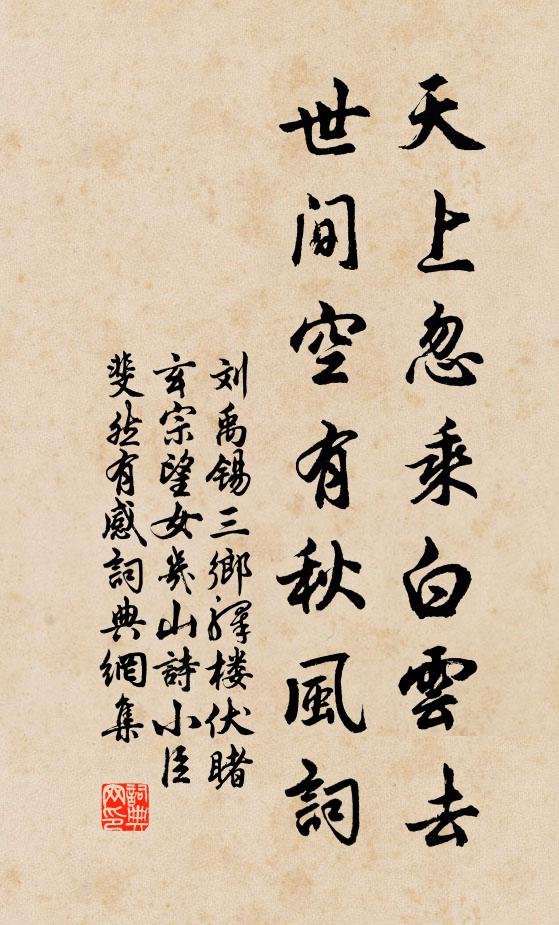 天上忽乘白雲去
世间空有秋風詞
刘禹锡三鄉驛楼伏睹
玄宗望女幾山詩小臣
斐然有感詞典網集
詞典网印